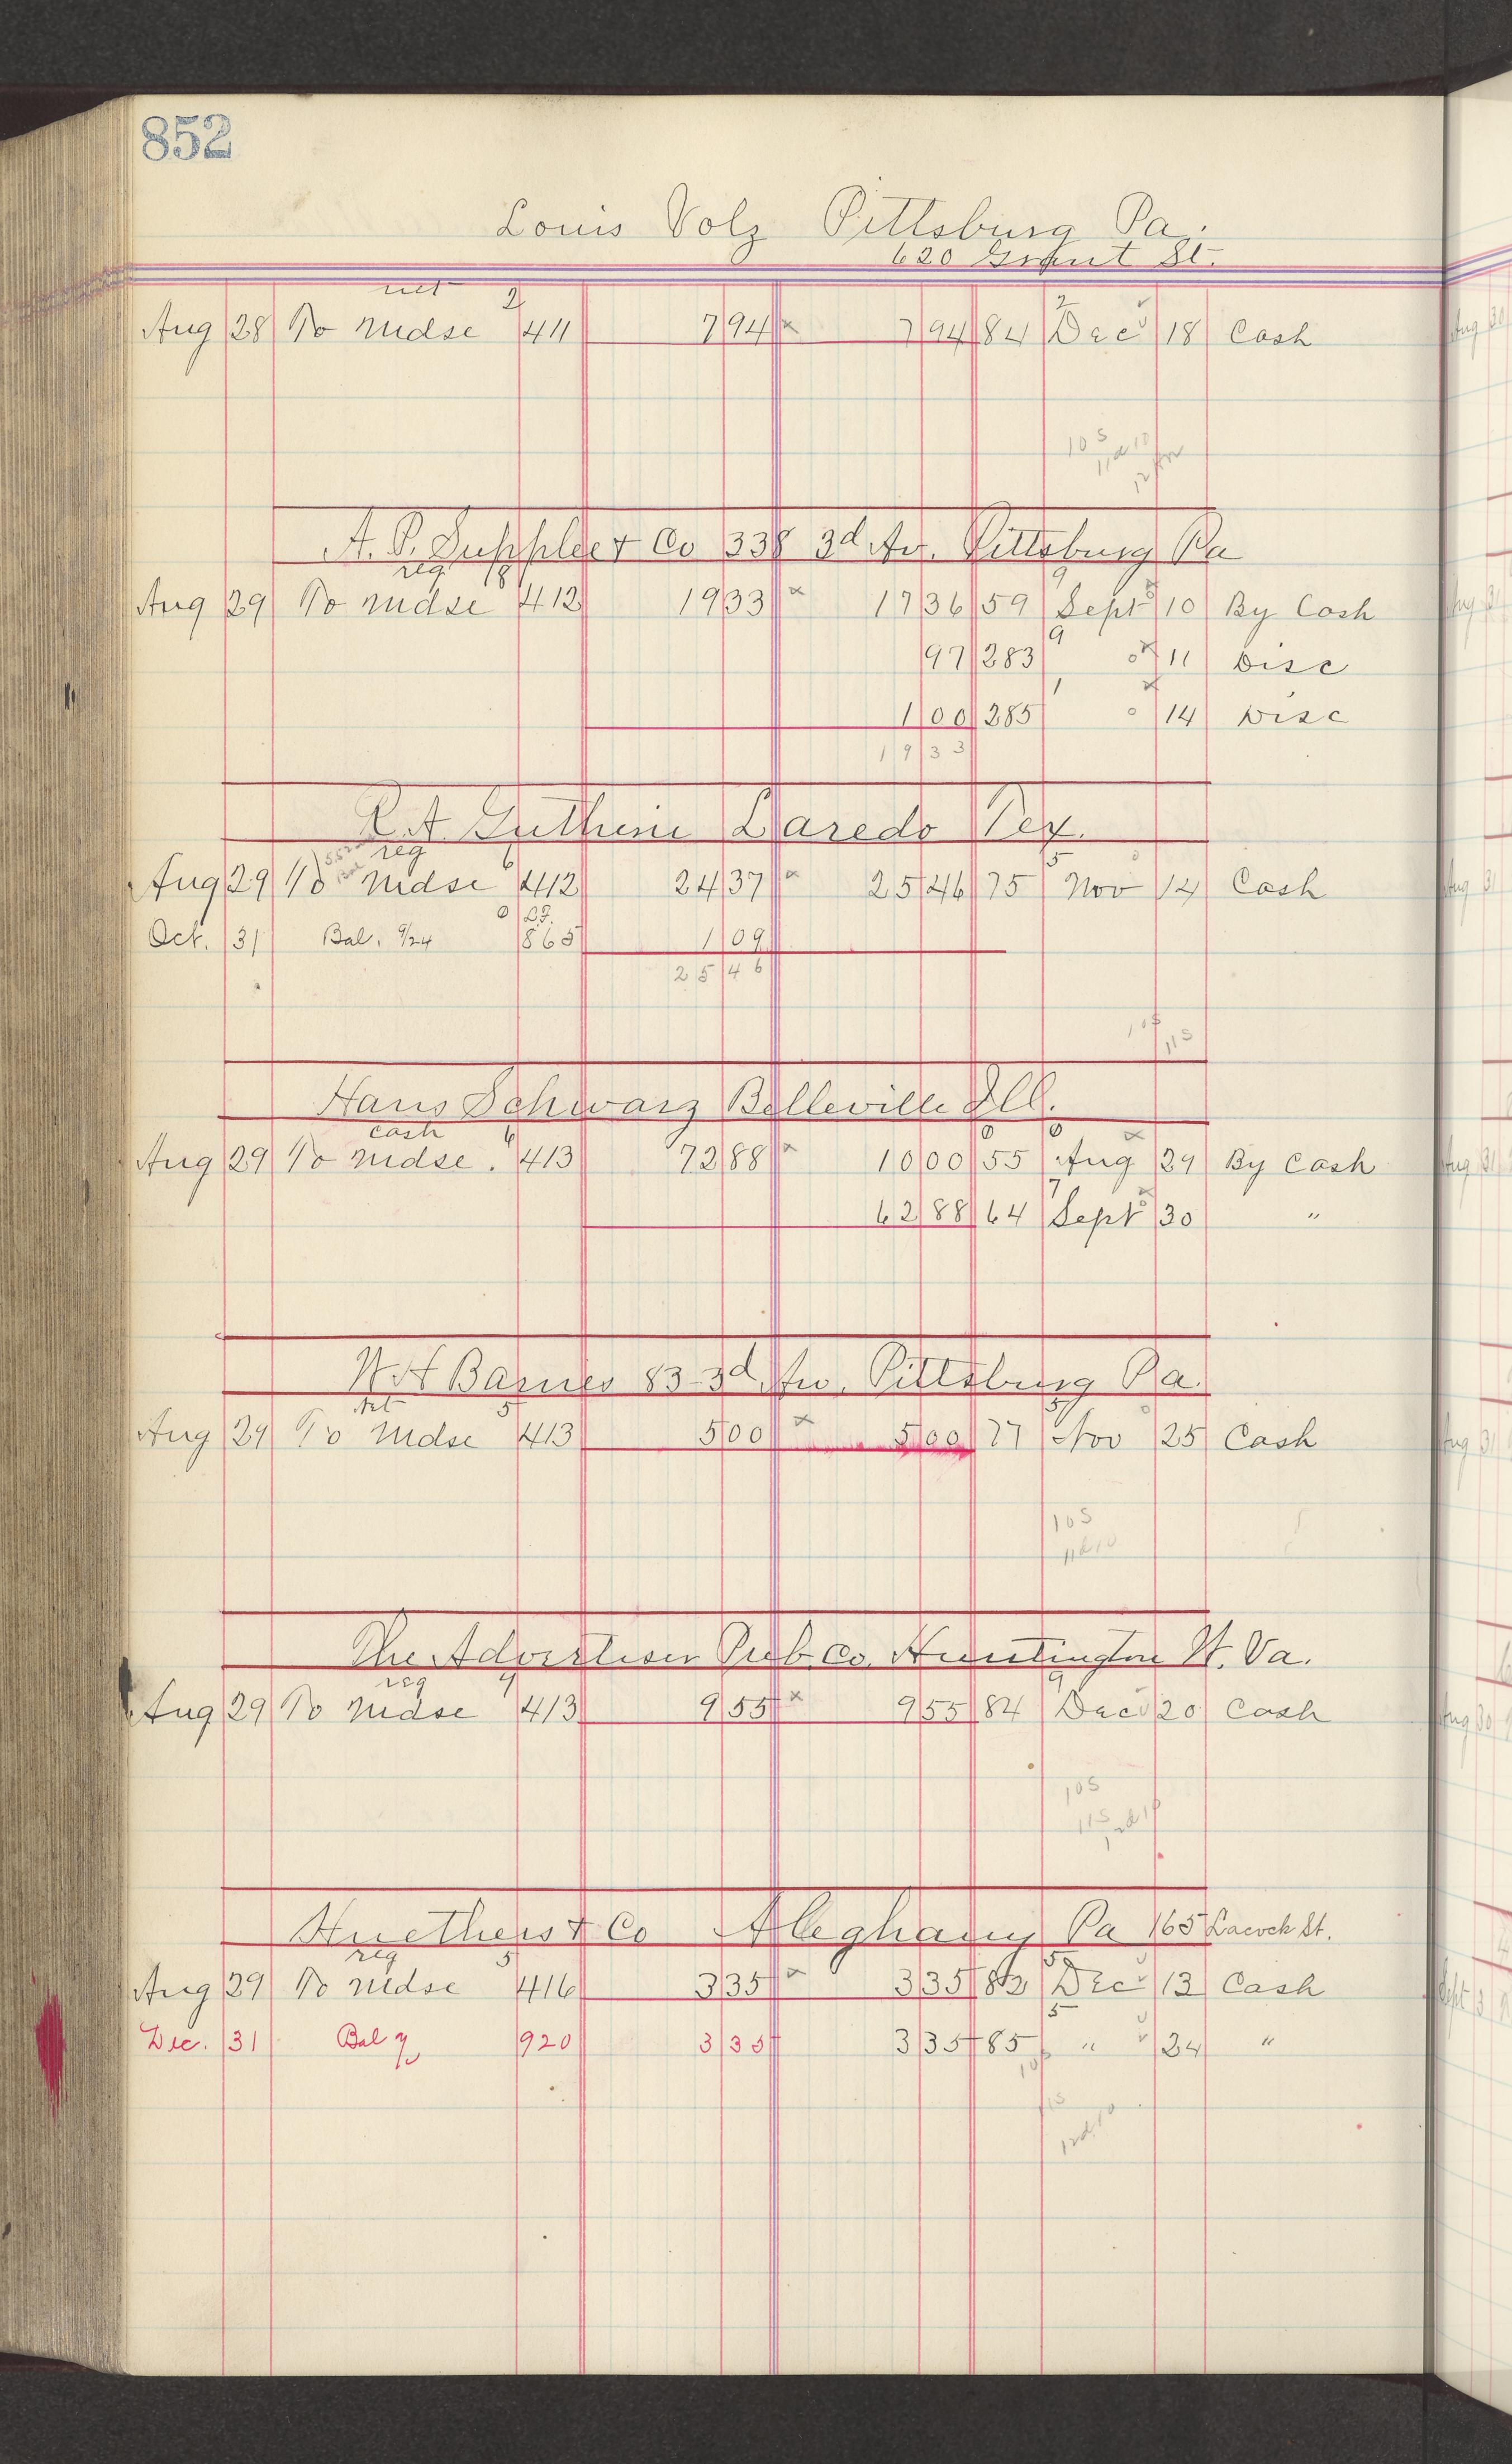 852
Louis Volz Pittsburg Pa.
620 Grant St.
net 2 2
Aug 28 To Mdse 411 7 94 x 7 94 84 Dec 18 Cash
10 S
A. P. Supplee & Co 338 3d Av. Pittsburg Pa
reg 8 9
Aug 29 To Mdse 412 19 33 x 17 36 59 Sept 10 By Cash
97 283 9 11 Disc
1 00 285 1 14 Disc
19 33
R. A. Guthrie Laredo Tex.
reg 6 5
Aug 29 To Mdse 412 24 37 x 25 46 75 Nov 14 Cash
0 L.F.
Oct. 31 Bal. 9/24 865 1 09
25 46
10 S
11 S
Hans Schwarz Belleville Ill.
cash 6 0 0 x
Aug 29 To Mdse. 413 72 88 x 10 00 55 Aug 29 By Cash
7
62 88 64 Sept 30 "
W H Barnes 83-3d Av. Pittsburg Pa.
Net 5 5
Aug 29 To Mdse 413 5 00 x 5 00 77 Nov 25 Cash
10 S
11 d 10
The Advertiser Pub. Co. Huntington W. Va.
reg 9 9
Aug 29 To Mdse 413 9 55 x 9 55 84 Dec 20 Cash
10 S
11 S
Huethers & Co Aleghany Pa 165 Lacock St.
reg 5 5
Aug 29 To Mdse 416 3 35 x 3 35 82 Dec 13 Cash
5
Dec. 31 Bal 920 3 35 3 35 85 " 24 "
11 S
12 d 10